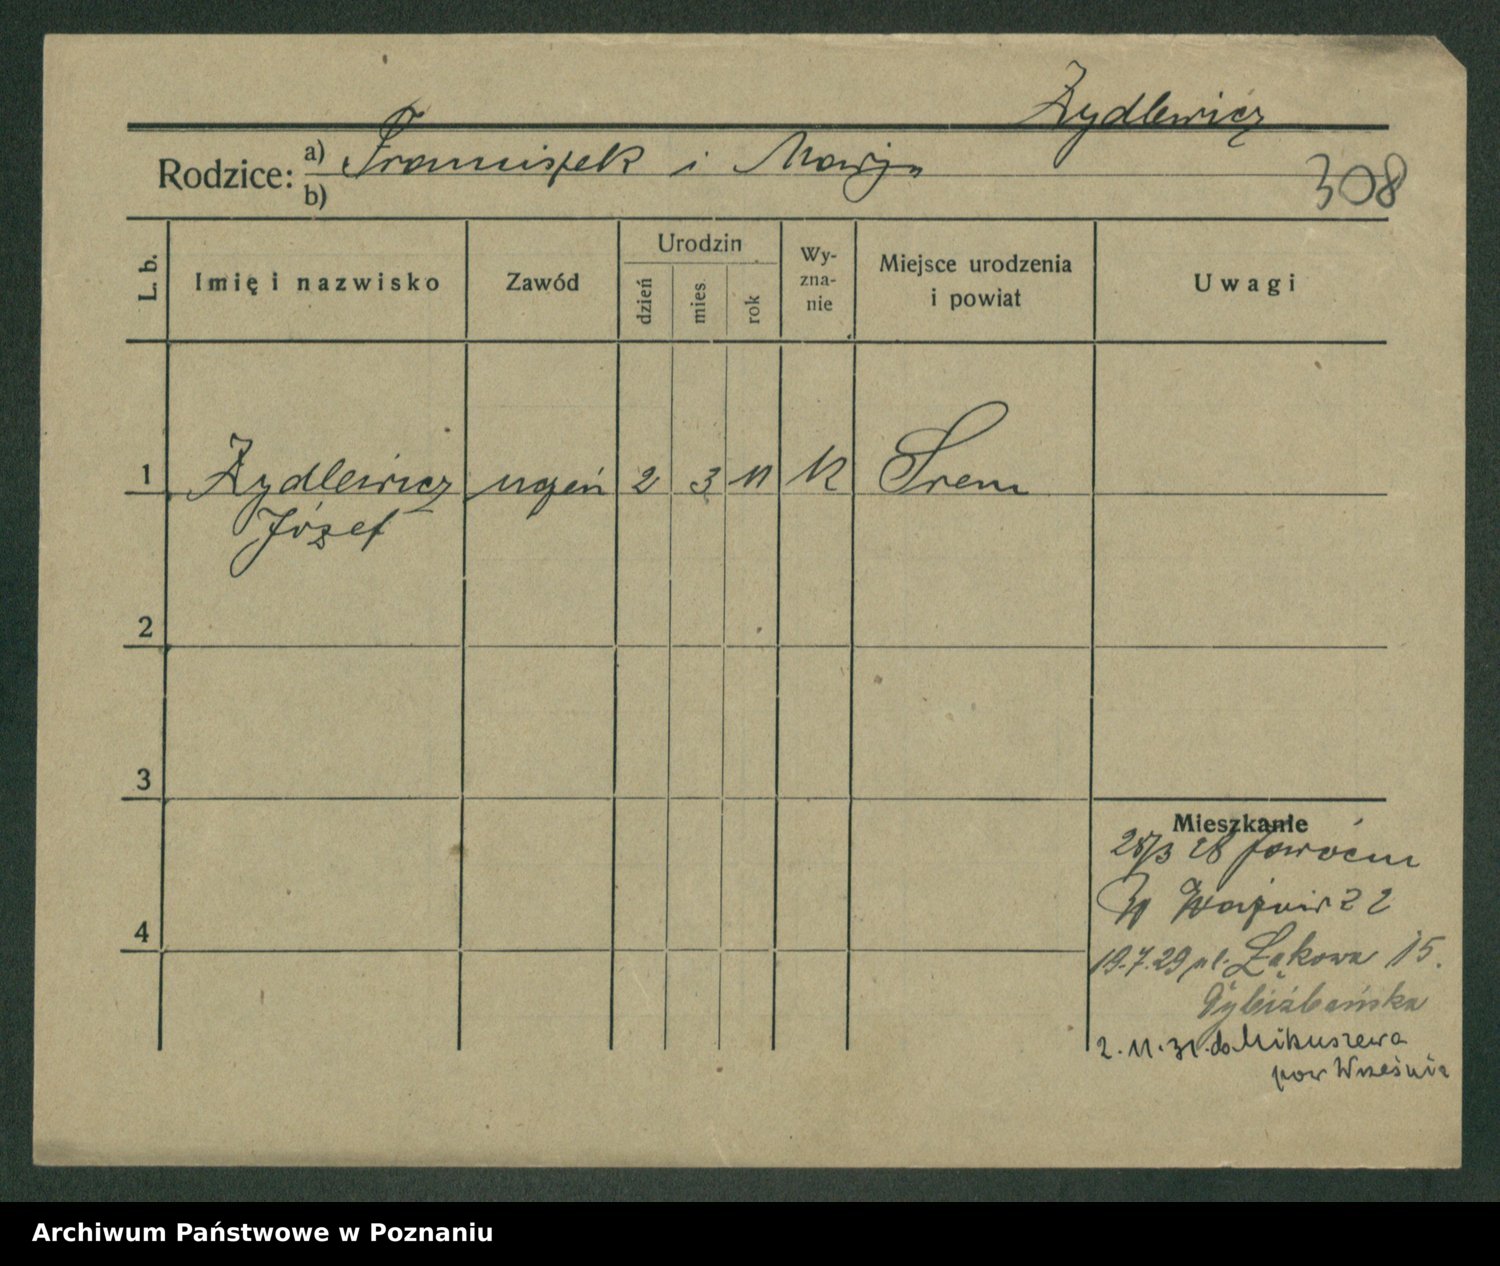 Żydlewicz
Rodzice: a) Franciszek i Marja
b)
308
L. b.
Imię i nazwisko
Zawód
Urodzin
dzień
mies
rok
Wy-
zna-
nie
Miejsce urodzenia
i powiat
Uwagi
1 Żydlewicz uczeń 2 3 11 K Śrem
Józef
2
3
Mieszkanie
28/3 28 Jarocin
22
4
19.7.29 ul. Łąkowa 15.
2.11.31. do Mikuszewa
pow Września
Archiwum Państwowe w Poznaniu